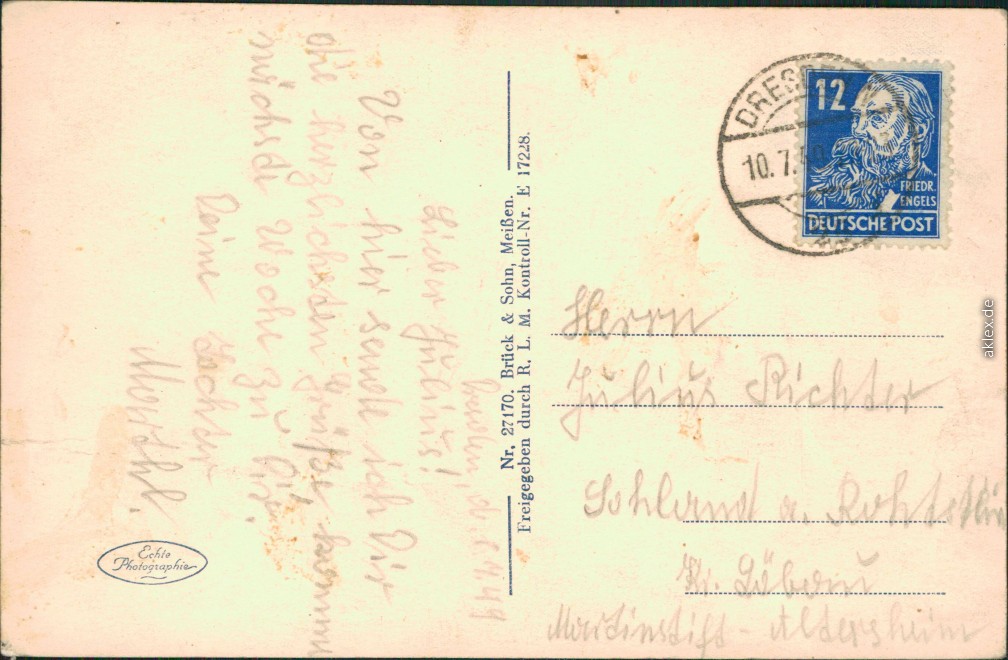 Dresden, d. 6.7.49
Lieber Julius!
Von hier sende ich Dir
die herzlichsten Grüße, komme
nächste Woche zu Dir.
Deine
Nr. 27170. Brück & Sohn, Meißen.
Freigegeben durch R. L. M. Kontroll-Nr. E 17228.
Echte
Photographie
DRESDEN
10. 7. 49
12
FRIEDR.
ENGELS
DEUTSCHE POST
Herrn
Julius Richter
Sohland a. Rothstein
Kr. Löbau
Martinstift - Altersheim
akpool.de